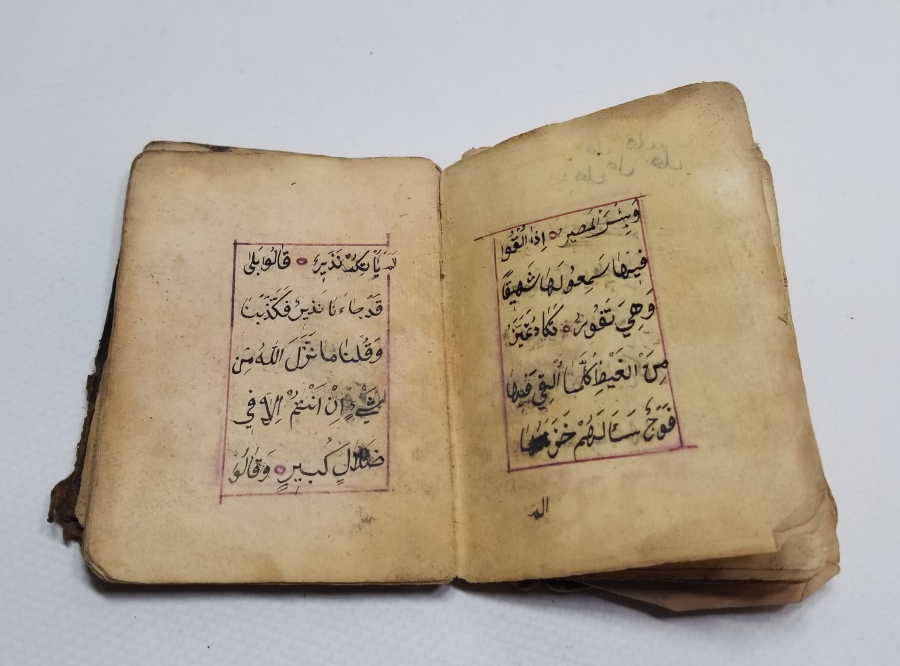 وَبِئْسَ الْمَصِيرُ ۝ اِذَا اُلْقُوا
فِيهَا سَمِعُوا لَهَا شَهِيقًا
وَهِيَ تَفُورُ ۝ تَكَادُ تَمَيَّزُ
مِنَ الْغَيْظِ كُلَّمَا اُلْقِيَ فِيهَا
فَوْجٌ سَاَلَهُمْ خَزَنَتُهَا
الم
لم يَأْتِكُمْ نَذِيرٌ ۝ قَالُوا بَلَى
قَدْ جَاءَنَا نَذِيرٌ فَكَذَّبْنَا
وَقُلْنَا مَا نَزَّلَ اللهُ مِنْ
شَيْءٍ اِنْ اَنْتُمْ اِلَّا فِي
ضَلَالٍ كَبِيرٍ ۝ وَقَالُوا